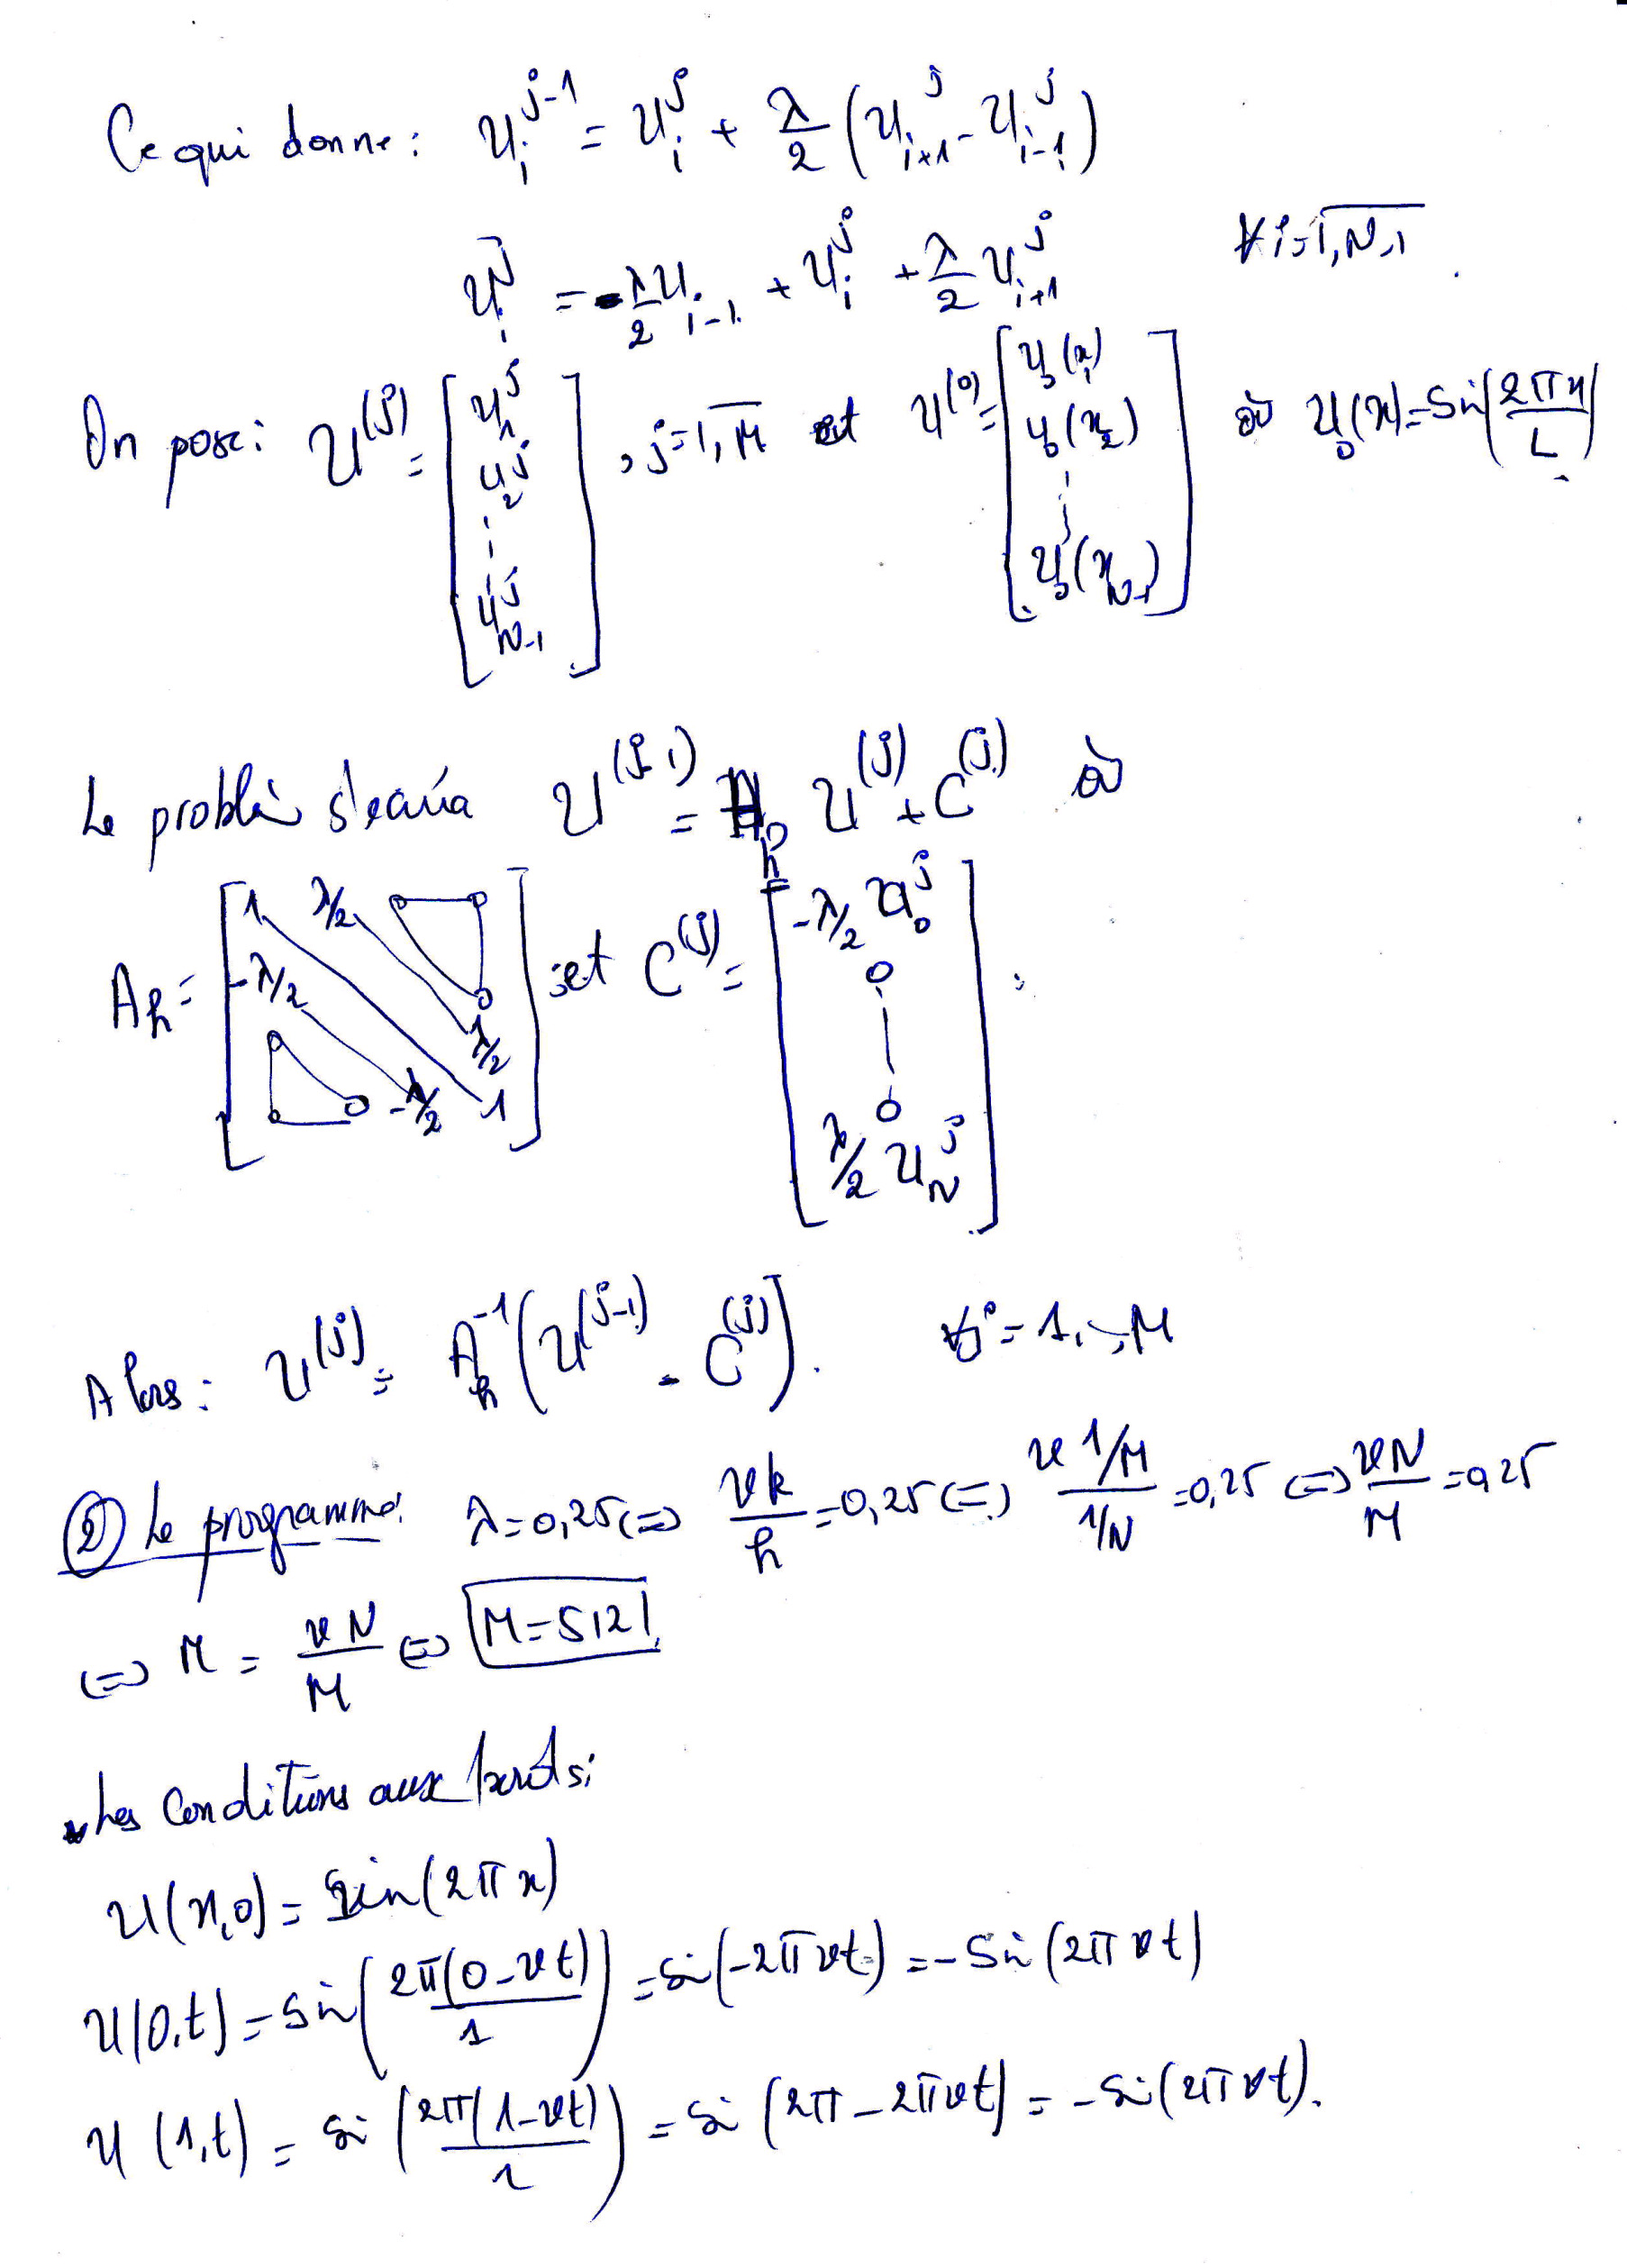 Ce qui donne : u_i^{j-1} = u_i^j + λ/2 (u_{i+1}^j - u_{i-1}^j)
= -λ/2 u_{i-1} + u_i^j + λ/2 u_{i+1}^j ∀ i=1,N-1.
On pose : U^{(j)} = [u_1^j u_2^j ⋮ u_{N-1}^j], j=1,M et U^{(0)} = [u_0(x_1) u_0(x_2) ⋮ u_0(x_{N-1})] où u_0(x)=Sin(2πx/L)
Le U^{(j-1)} = A_h U^{(j)} + C^{(j)} où
A_h = [1 λ/2 0 0 -λ/2 0 λ/2 0 0 0 -λ/2 1] et C^{(j)} = [-λ/2 u_0^j 0 | 0 λ/2 u_N^j].
Alors : U^{(j)} = A_h^{-1} (U^{(j-1)} - C^{(j)}). ∀j = 1,..,M
② Le programme: λ=0,25 ⟺ vk/h = 0,25 ⟺ v 1/M / 1/N = 0,25 ⟺ vN/M = 0,25
⟺ M = vN/M ⟺ M=512
Les Conditions aux bords :
u(x,0) = Sin(2πx)
u(0,t) = Sin(2π(0-vt)/1) = Si(-2πvt) = -Sin(2πvt)
u(1,t) = Si(2π(1-vt)/1) = Si(2π-2πvt) = -Si(2πvt).